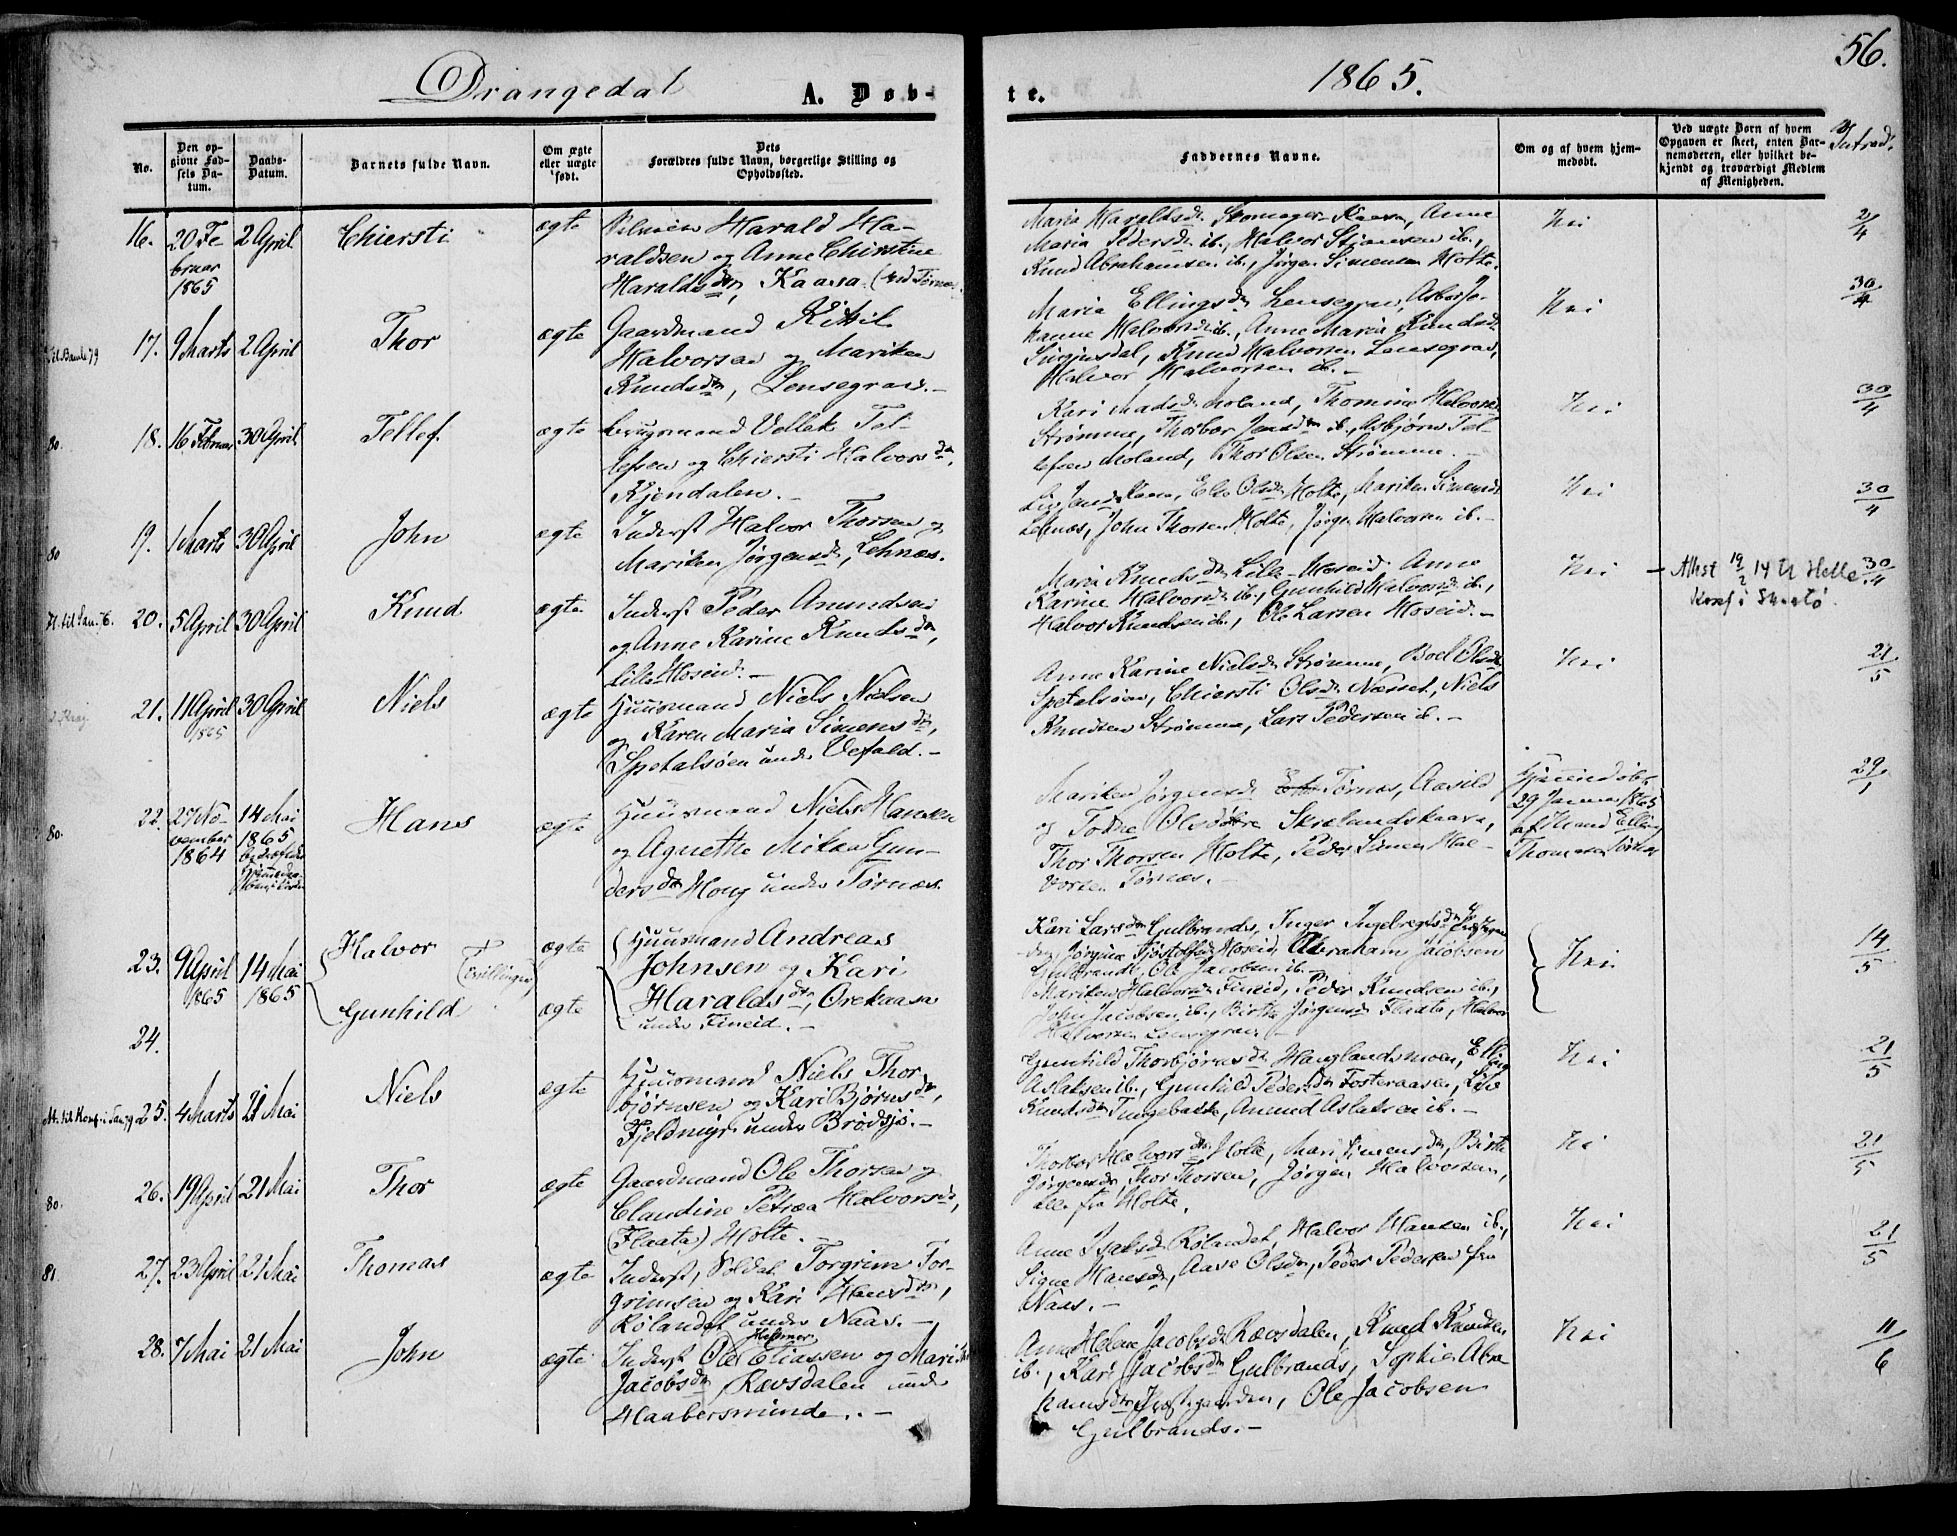 56.
Drangedal
A. Døb-
te.
1865.
No.
Den op-
givne Fød-
sels Da-
tum.
Daabs-
Datum.
Barnets fulde Navn.
Om ægte
eller uægte
født.
Dets
Forældres fulde Navn, borgerlige Stilling og
Opholdssted.
Faddernes Navne.
Om og af hvem hjem-
medøbt.
Ved uægte Børn af hvem
Opgaven er skeet, enten Bar-
nemoderen, eller hvilket be-
kjendt og troværdigt Medlem
af Menigheden.
Introd.
16.
20 Fe-
bruar
1865
2 April
Chiersti
ægte
Harald Ha-
raldsen og Anne Chirstine
Haraldsdtr, Kaasa
Maria Haraldsd. Kaasa, Anne
Maria Pedersd. ib., Halvor Stiansen ib.,
Knud Abrahamsen ib., Jørgen Simonsen Holte.
Nei
2/4
17.
9 Marts
2 April
Thor
ægte
Gaardmand Kittil
Halvorsen og Mariken
Knudsdtr, Lensegrav.-
Maria Ellingsdtr Lensegrav, Asber Jo-
hanne Halvorsd. ib., Anne Maria Knudsd.
Knud Halvorsen Lensegrav,
Halvor Halvorsen ib.-
Nei
30/4
80.
18.
16 Februar
30 April
Tellef.
ægte
Brugsmand Vellek Tel-
lefsen og Chiersti Halvorsdtr,
Kjendalen.-
Kari Madsd. Moland, Thomine Halvorsd.
Strømme, Thorbor Jensdtr ib., Asbjørn Tel-
lefsen Moland, Thor Olsen Strømme.-
Nei
30/4
80
19.
1 Marts
30 April
John
ægte
Inderst Halvor Thorsen og
Mariken Jørgensd., Lehnæs.
Kaasa, Else Olsd. Holte, Mariken Simensd.
Lehnæs, John Thorsen Holte, Jørgen Halvorsen ib.-
Nei
30/4
20.
5 April
30 April
Knud.
ægte
Inderst Peder Amundsen
og Anne Karine Knudsdtr,
Lille Hoseid.-
Maria Knudsdtr Lille-Hoseid. Anne
Karine Halvorsd. ib., Gunhild Halvorsd. ib.,
Halvor Knudsen ib., Ole Larsen Hoseid.-
Nei
- Attest 19/2 14 til Helle
Konf i
30/4
21.
11 April
1865
30 April
Niels
ægte
Huusmand Niels Nielsen
og Karen Maria Simensdtr,
Spetalsøen under Vefald.-
Anne Karine Nielsd. Strømme, Boel Olsd.
Spetalsøen, Chiersti Olsd. Næsset, Niels
Knudsen Strømme, Lars Pedersen ib.-
Nei
21/5
80.
22.
27 No-
vember
1864
14 Mai
1865
Hans
ægte
Huusmand Niels Hansen
og Agnethe Mikea Gun-
dersdtr Houg under Tørnæs.
Mariken Jørgensd. Tørnæs, Aasild
og Tone Olsdøtre Skrælandskaasa,
Thor Thorsen Holte, Peder Simen Hal-
vorsen Tørnæs.-
Hjemmedøbt
29 Januar 1865
af Mand Elling
Thomesen Tørnæs
29/
23.
9 April
1865
14 Mai
1865
Halvor
(Tvillinger)
Gunhild
ægte
ægte
Huusmand Andreas
Johnsen og Kari
Haraldsdtr, Orekaasa
under Fineid.-
Kari Larsdtr Gulbrands, Inger Ingebregtsdtr
Jørgine Tjøstolfsd. Hoseid, Abraham Jacobsen
Gulbrands, Ole Jacobsen ib.-
Mariken Halvorsd. Fineid, Peder Knudsen ib.,
John Jacobsen ib., Birthe Jørgensd. Flaate, Halvor
Halvorsen Lensegrav.-
Nei
14/5
24.
25.
4 Marts
21 Mai
Niels
ægte
Huusmand Niels Thor-
bjørnsen og Kari Bjørnsdtr,
Fjeldmyr under Brødsjø.-
Gunhild Thorbjørnsdtr Hauglandsmoen, Elling
Aslaksen ib., Gunhild Pedersdtr Fosteraasen, Live
Knudsdtr Tingebakke, Amund Aslaksen ib.-
Nei
21/5
80.
26.
19 April
21 Mai
Thor
ægte
Gaardmand Ole Thorsen og
Claudine Petræa Halvorsd.,
(Flaate) Holte.-
Thorbor Halvorsdtr Holte, Mari Simensdtr, Birthe
Jørgensd., Thor Thorsen, Jørgen Halvorsen,
alle fra Holte.
Nei
21/5
81.
27.
23 April
21 Mai
Thomas
ægte
Inderst, Soldat Torgrim Tor-
grimsen og Kari Hansdtr,
Rølandet under Naas.-
Anne Isaksd. Rølandet, Halvor Hansen ib.,
Signe Hansd., Aase Olsd., Peder Pedersen fra
Naas.-
Nei
21/5
28.
7 Mai
21 Mai
John
ægte
Inderst Ole Eliassen og Mari
Jacobsdtr Rævsdalen under
Haabersminde.-
Anne Helene Jacobsd. Rævsdalen, Knud Knudsen
ib., Kari Jacobsdtr Gulbrands, Sophie Abra-
hamsdtr Ole Jacobsen
Gulbrands.-
Nei
11/6